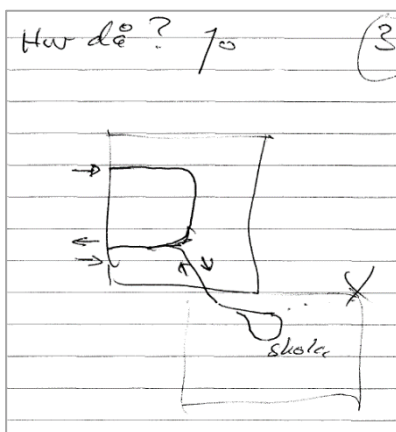 Hur då? Jo 3
skola